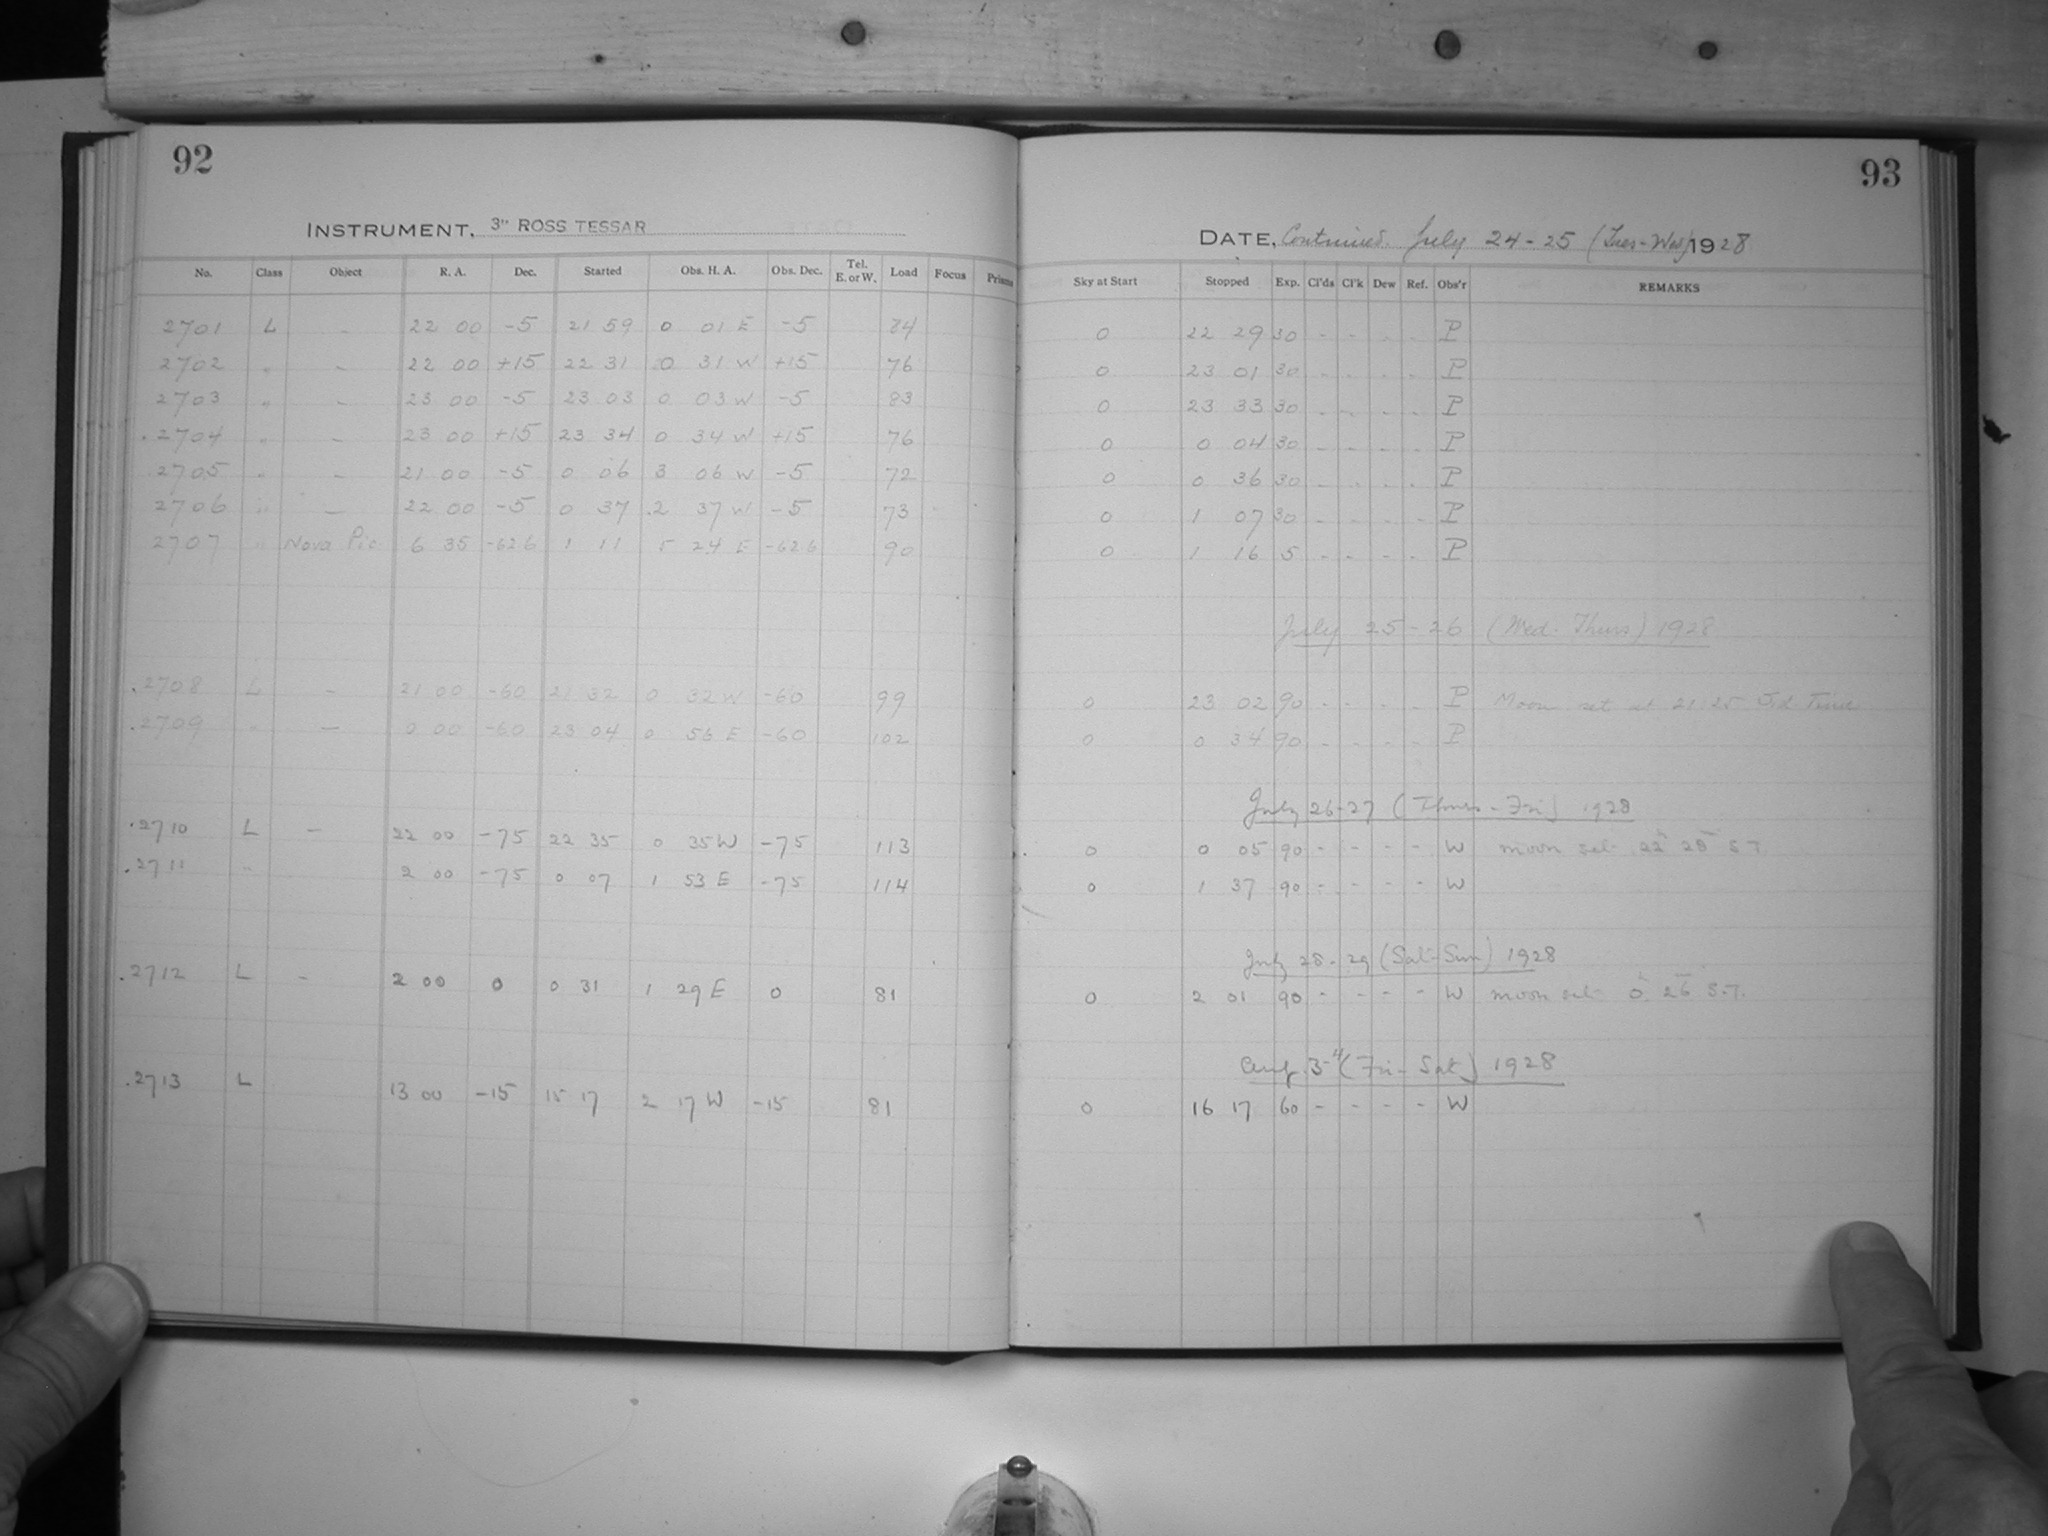 92
INSTRUMENT, 3" ROSS TESSAR
No. Class Object R. A. Dec. Started Obs. H. A. Obs. Dec. Tel. E. or W. Load Focus Prisms
2701 L - 22 00 -5 21 59 0 01 E -5 84
2702 " - 22 00 +15 22 31 0 31 W +15 76
2703 " - 23 00 -5 23 03 0 03 W -5 83
.2704 " - 23 00 +15 23 34 0 34 W +15 76
.2705 " - 21 00 -5 0 06 3 06 W -5 72
2706 " - 22 00 -5 0 37 2 37 W -5 73
2707 " Nova Pic 6 35 -62 6 1 11 5 24 E -62 6 90
.2708 L - 21 00 -60 21 32 0 32 W -60 99
.2709 " - 0 00 -60 23 04 0 56 E -60 102
.2710 L - 22 00 -75 22 35 0 35 W -75 113
.2711 - 2 00 -75 0 07 1 53 E -75 114
.2712 L - 2 00 0 0 31 1 29 E 0 81
.2713 L 13 00 -15 15 17 2 17 W -15 81
93
DATE, Continued July 24-25 (Tues-Wed) 1928
Sky at Start Stopped Exp. Cl'ds Cl'k Dew Ref. Obs'r REMARKS
0 22 29 30 - - - - P
0 23 01 30 - - - - P
0 23 33 30 - - - - P
0 0 04 30 - - - - P
0 0 36 30 - - - - P
0 1 07 30 - - - - P
0 1 16 5 - - - - P
July 25-26 (Wed-Thurs) 1928
0 23 02 90 - - - - P Moon set at 21:25 Sid. Time
0 0 34 90 - - - - P
July 26-27 (Thurs-Fri) 1928
0 0 05 90 - - - - W moon set 22h 28m S.T.
0 1 37 90 - - - - W
July 28-29 (Sat-Sun) 1928
0 2 01 90 - - - - W moon set 0h 26m S.T.
Aug. 3-4 (Fri-Sat) 1928
0 16 17 60 - - - - W